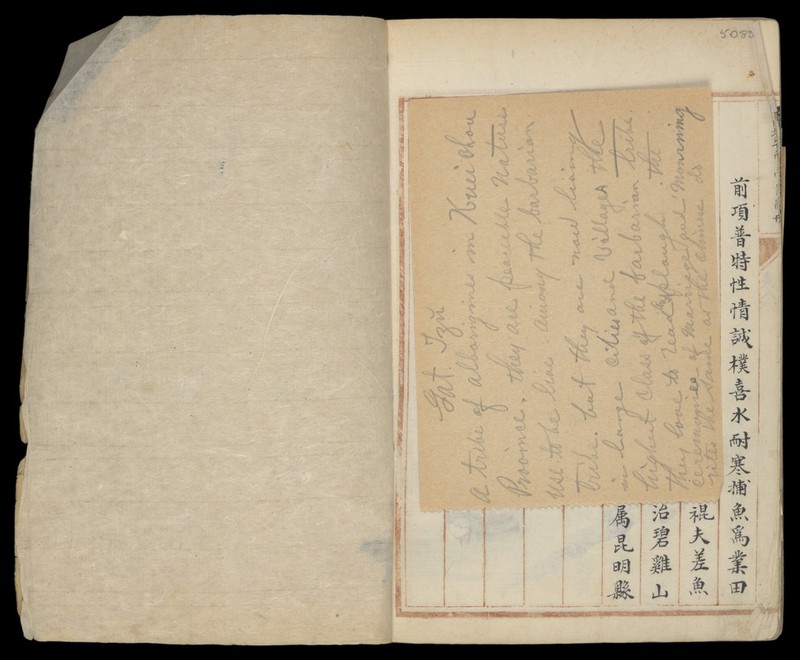 5083
Gat. Tzŭ
a tribe of alborijines in Kuei chou
Province. they are peaceable Nature
use to be live among the barbarian
tribe. but they are now living
in large cities and Villages the
highest Class of the barbarian tribe.
they love to read & plough the
ceremonies of Marriage and Mourning
rites the same as the chinese do
前項普特性情誠樸喜水耐寒捕魚爲業田
祖大差魚
治碧雞山
属昆明縣